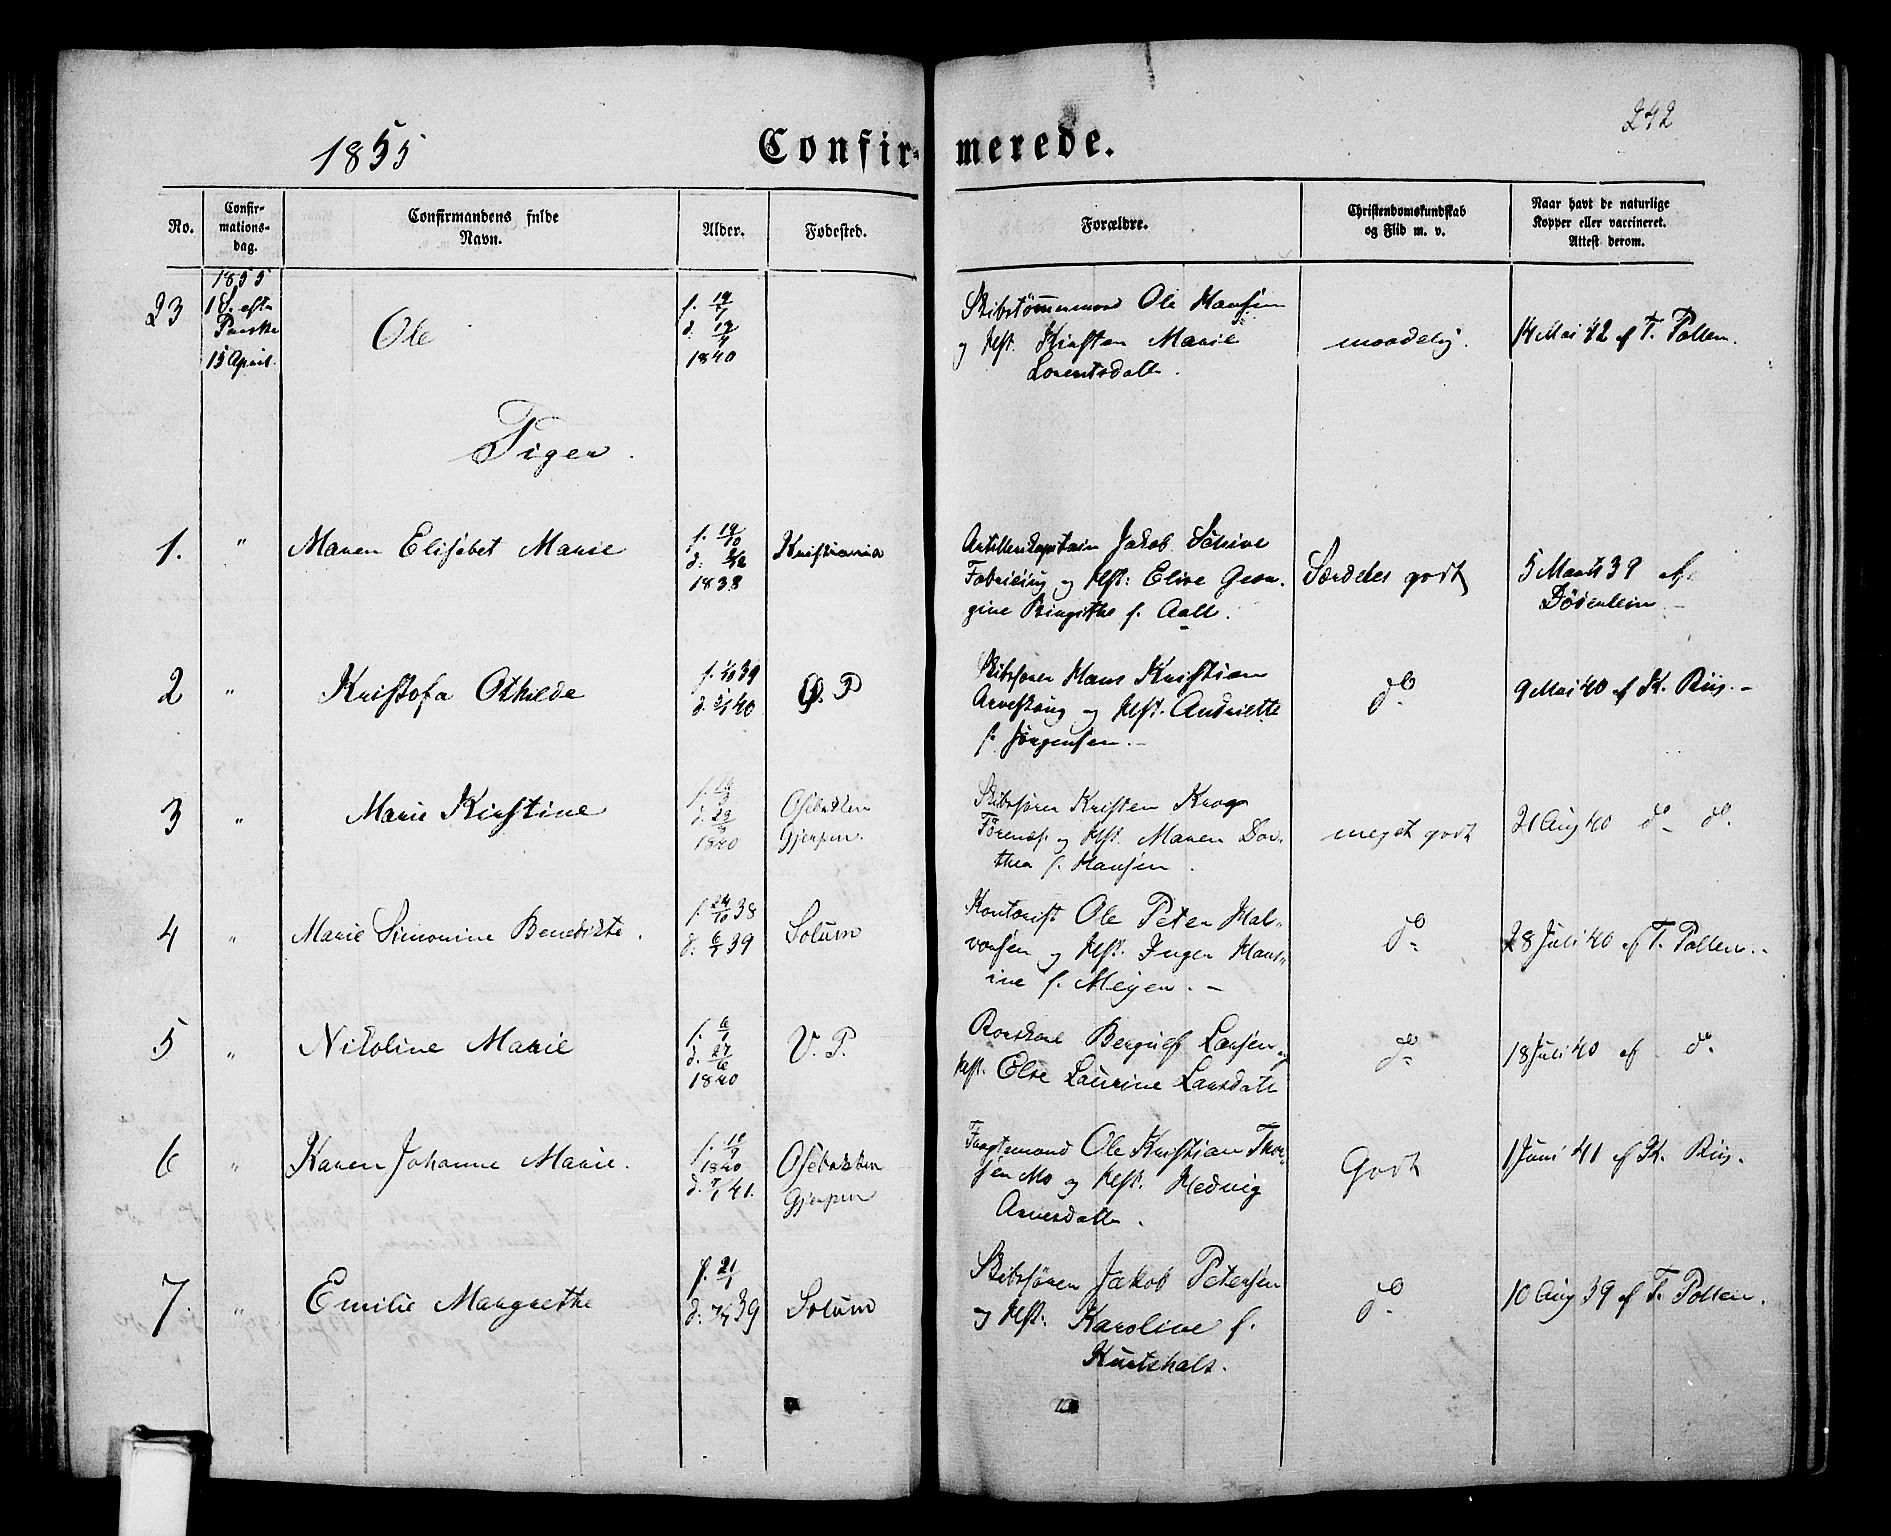 242
1855
Confir- merede.
No.
Confir-
mations-
dag.
Confirmandens fulde
Navn.
Alder.
Fødested.
Forældre.
Christendomskundskab
og Flid m. v.
Naar havt de naturlige
Kopper eller vaccineret.
Attest derom.
1855
23 1 S. efter
Paaske
15 April.
Ole
f. 19/7
1840
Skibstømmermand Ole Hansen
og Hst. Kirsten Marie
Lorentsdatter.
maadelig.
14 Mai 42 af T. Pollen.
Piger.
1. " Maren Elisabet Marie
f. 19/10
d.
1838
Kristiania
Artillerikapitain Jakob Schive
og Hst: Elise Geor-
gine Birgithe f. Aall.
Særdeles godt
5 Marts 39 af
2 " Kristofa Othilde
Ø. P
Skibsfører Hans Kristian
og Hst. Andriette
f. Jørgensen.-
do
9 Mai 40 af K. Riis.-
3 " Marie Kirstine
1840
Osebakken
Gjerpen.
Skibsfører Kristen Krog
og Hst. Maren Dor-
thea f. Hansen.
meget godt
21 Aug 40 do do.
4 " Marie Simonine Benedikte.
f. 24/10 38
d. 6/1 39
Solum
Kontorist Ole Peter Hal-
vorsen og Hst. Inger Hans-
ine f. Meyer.-
do
28 Juli 40 af T. Pollen.-
5 " Nikoline Marie
d. 27/6
1840
V. P.
Larsen og
Hst. Else Laurine Larsdatter
do
18 Juli 40 af do.
6 " Karen Johanne Marie.
1840
d. 7/1 41.
Osebakken
Gjerpen
Ole Kristian Thor-
sen Mo og Hst. Hedvig
Arnesdatter.
Godt
1 Juni 41 af K. Riis.
7. " Emilie Margrethe
f. 21/1
39
Solum
Skibsfører Jakob Petersen
og Hst. Karoline f.
do
10 Aug 39 af T. Pollen.